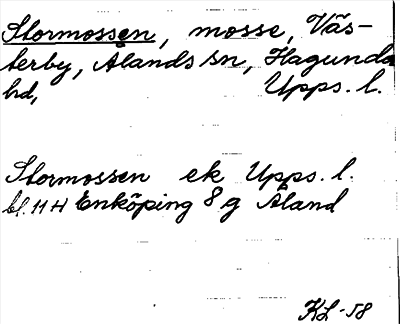 Stormossen, mosse, Väs-
terby, Ålands sn, Hagunda
hd, Upps. l.
Stormossen ek Upps. l.
bl. 11 H Enköping 8 g Åland
KL -58